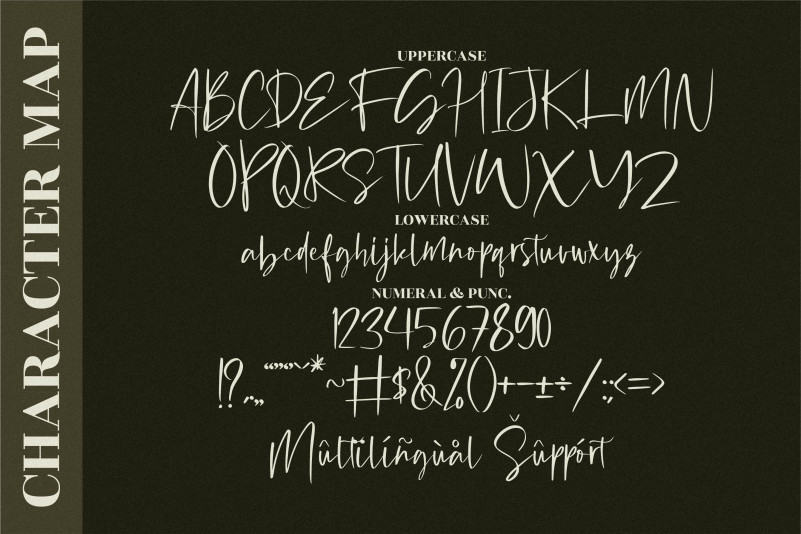 CHARACTER MAP
UPPERCASE
ABCDEFGHIJKLMN
OPQRSTUVWXYZ
LOWERCASE
abcdefghijklmnopqrstuvwxyz
NUMERAL & PUNC.
1234567890
!?.,„“”‘’~*~#$&%()+-±÷/:;<=>
Mûltïlíñgùål Šûppórt